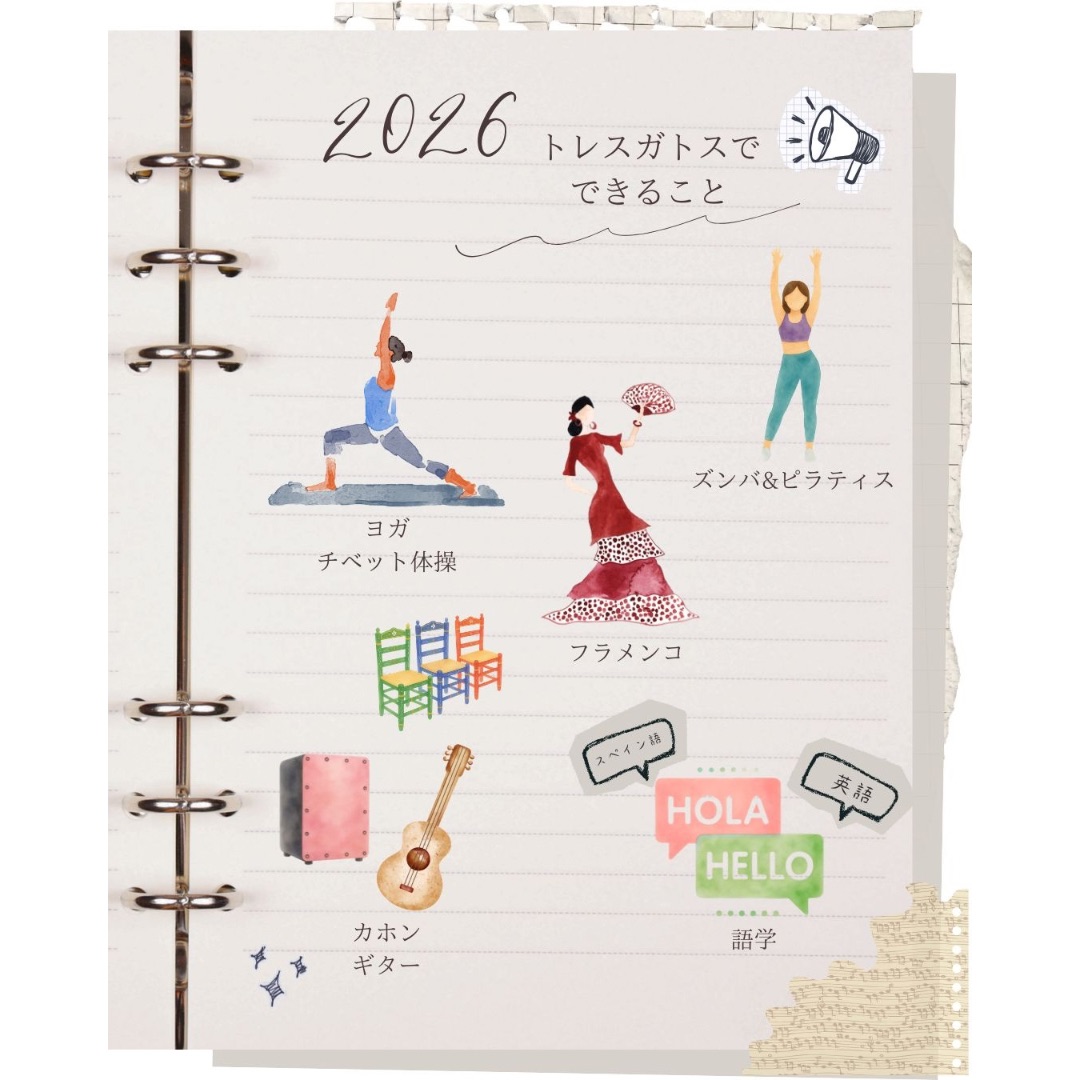 2026 トレスガトスで
できること
ズンバ&ピラティス
ヨガ
チベット体操
フラメンコ
スペイン語
英語
HOLA
HELLO
カホン
ギター
語学